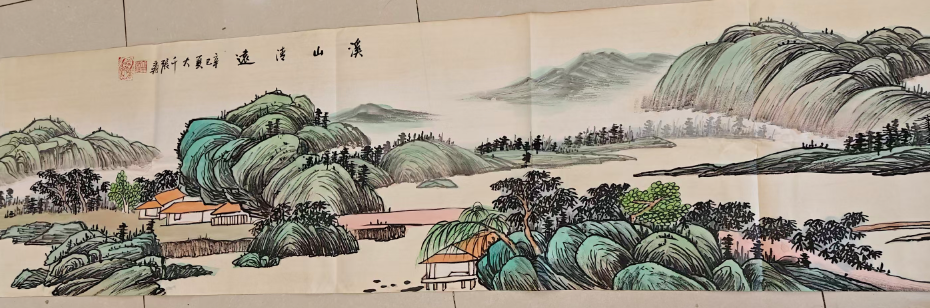 溪山清遠
辛巳夏大千張爰